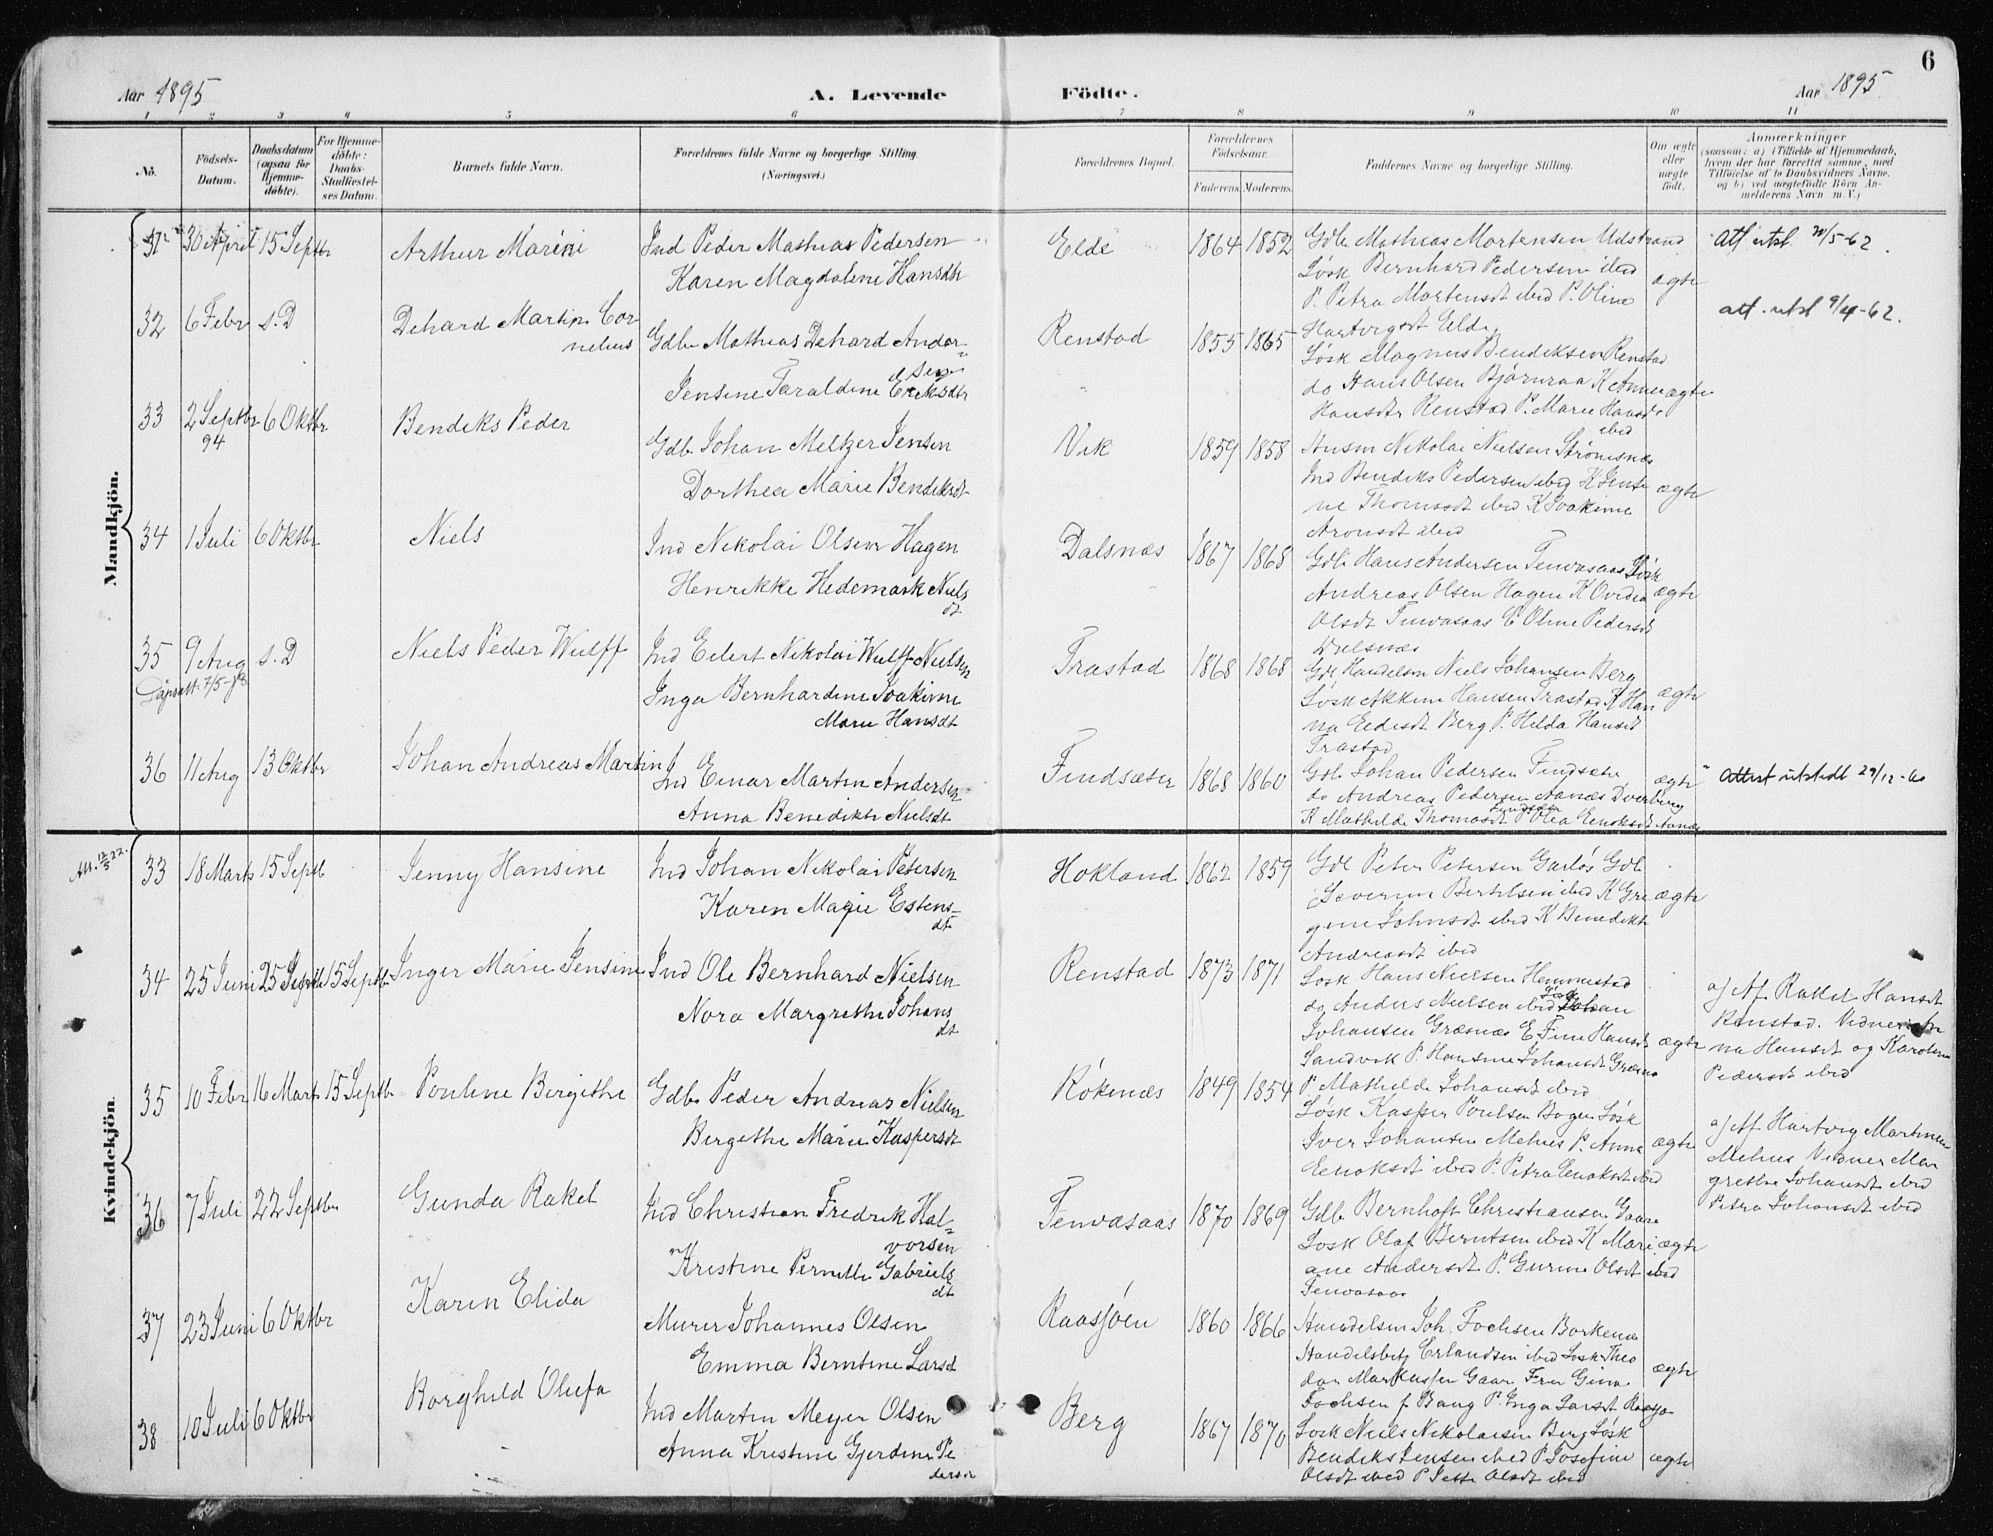 6
Aar 1895
A. Levende Födte.
Aar 1895
1 2 3 4 5 6 7 8 9 10 11
No.
Födsels-Datum.
Daabsdatum (ogsaa for Hjemme-döbte).
For Hjemme-döbte: Daabs-Stadfæstel-ses Datum.
Barnets fulde Navn.
Forældrenes fulde Navne og borgerlige Stilling.
(Næringsvei.)
Forældrenes Bopæl.
Forældrenes Födselsaar.
Faderens. Moderens.
Faddernes Navne og borgerlige Stilling.
Om ægte eller uægte födt.
Anmærkninger
(saasom: a) i Tilfælde af Hjemmedaab,
hvem der har forrettet samme, med
Tilföielse af to Daabsvidners Navne.
og b) ved uægtefödte Börn An-
melderens Navn m. V.)
Mandkjön.
31 30 April 15 Septbr Arthur Marini Ind Peder Mathias Pedersen
Karen Magdalene Hansdtr
Elde 1864 1852 Gdb Mathias Mortensen Udstrand
Løsk Bernhard Pedersen ibid
P. Petra Mortensdt ibid P. Oline
Hartvigsdt Elde
ægte
Att utst 21/5-62.
32 6 Febr s. D Dehard Martin Cor-
nelius
Gdb Mathias Dehard Ander-
sen
Jensine Taraldine Eriksdtr
Renstad 1855 1865
Løsk Magnus Bendiksen Renstad
do Hans Olsen Bjørnraa K Anne
Hansdtr Renstad P. Marie Hansdt
ibid
ægte
att. utst 9/4-62.
33 2 Septbr 94 6 Oktbr Bendiks Peder
Gdb. Johan Meltzer Jensen
Dorthea Marie Bendiksdt
Vik 1859 1858
Nikolai Nielsen Strømsnæs
Ind Bendiks Pedersen ibid K Jensi
ne Thomasdt ibid K Joakime
Aronsdt ibid
ægte
34 1 Juli 6 Oktbr Niels
Ind Nikolai Olsen Hagen
Henrikke Hedemark Niels
dt
Dalsnæs 1867 1868
Gdb Hans Andersen Tenvasaas Løsk
Andreas Olsen Hagen K Ovidia
Olsdt Tenvasaas E Oline Pedersdt
Dalsnæs
ægte
35 9 Aug s. D Niels Peder Wulff
Dåpsatt. 7/5-
Ind Eilert Nikolai Wulff Nielsen
Inga Bernhardine Joakime
Marie Hansdt
Trastad 1868 1868
Gdb Handelsm Niels Johansen Berg
Løsk Hansen Trastad K Han
na Berg P. Hilda Hansdt
Trastad
ægte
36 11 Aug 13 Oktbr Johan Andreas Martin
Ind Einar Martin Andersen
Anna Benedikte Nielsdt
Findsæter 1868 1860
Gdb Johan Pedersen Findsæter
do Andreas Pedersen Aanæs Dverberg
K Mathilde Thomasdt Findsæter P Olea Enoksdt Aanæs
ægte
Attest utstedt 29/12-60
Kvindekjön.
Att. 12/5 22.
33 18 Marts 15 Septb Jenny Hansine
Ind Johan Nikolai Petersen
Karen Marie Estens-
dt
Hokland 1862 1859
Gdb Peter Petersen Garløs Gdb
Severin Bertelsen ibid K Gre
gine Johnsdt ibid K Benedikte
Andreasdt ibid
ægte
34 25 Juni 25 15 Septb Inger Marie Jensine
Ind Ole Bernhard Nielsen
Nora Margrethe Johans
dt
Renstad 1873 1871
Løsk Hans Nielsen Hemmestad
do Anders Nielsen ibid Løsk Johan
Johansen Græsnæs E. Fine Hansdt
Sandvik P. Hansine Johansdt Græsnæs
P Mathilde Johansdt ibid
ægte
a) Af Rakel Hansdt
Renstad. Vidner
na Hansdt og Karoline
Pedersdt ibid
35 10 Febr 16 Marts 15 Septbr Pouline Birgithe
Gdb Peder Andreas Nielsen
Bergithe Marie Kaspersdt
Røkenæs 1849 1854
Løsk Kasper Poulsen Bogen Løsk
Iver Johansen Melnes P. Anna
Enoksdt ibid P. Petra Enoksdt ibid
ægte
a) Af Hartvig Martinsen
Melnes Vidner Mar
grethe Johansdt ibid
Petra Johansdt ibid
36 7 Juli 22 Septbr Gunda Rakel
Ind Christian Fredrik Hal-
vorsen
Kristine Pernille Gabriels
dt
Tenvasaas 1870 1869
Gdb Bernhoft Christiansen Gaare
Løsk Olaf Berntsen ibid K Mari
ane Andersdt P. Gurine Olsdt ibid
Tenvasaas
ægte
37 23 Juni 6 Oktbr Karen Elida
Murer Johannes Olsen
Emma Berntine Larsd
Raasjøen 1860 1866
Handelsm Joh. Fochsen Borkenæs
Handelsbetj Erlandsen ibid Løsk Theo
dor Markussen Gaar Fru Gina
Fochsen f. Bang P. Inga Larsdt Raasjø
ægte
38 10 Juli 6 Oktbr Borghild Olufa
Ind Martin Meyer Olsen
Anna Kristine Gjerdine Pe
dersd
Berg 1867 1870
Løsk Niels Nikolaisen Berg Løsk
Bendiks Jensen ibid P Josefine
Olsdt ibid P Jette Olsdt ibid
ægte